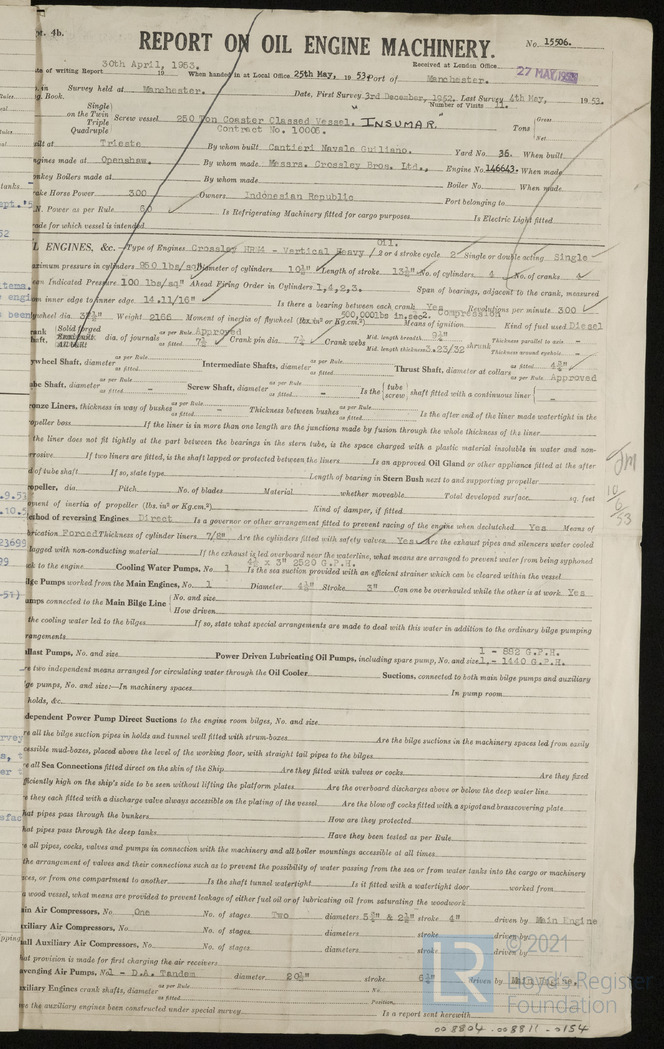 pt. 4b.
REPORT ON OIL ENGINE MACHINERY.
No. 15506.
Received at London Office 27 MAY 1953
te of writing Report 30th April, 1953. 19 When handed in at Local Office 25th May, 19 53 Port of Manchester.
in Survey held at Manchester. Date, First Survey 3rd December, 1952. Last Survey 4th May, 19 53.
g. Book. Number of Visits 11.
Single
on the Twin
Triple
Quadruple
Screw vessel 250 Ton Coaster Classed Vessel. "INSUMAR"
Contract No. 10005.
Tons Gross
Net
uilt at Trieste By whom built Cantieri Navale Guiliano. Yard No. 36. When built
ngines made at Openshaw. By whom made Messrs. Crossley Bros. Ltd., Engine No. 146643. When made
onkey Boilers made at By whom made Boiler No. When made
ake Horse Power 300 Owners Indonesian Republic Port belonging to
N. Power as per Rule Is Refrigerating Machinery fitted for cargo purposes Is Electric Light fitted
rade for which vessel is intended
L ENGINES, &c.—Type of Engines Crossley HRN4 - Vertical Heavy Oil. 2 or 4 stroke cycle 2 Single or double acting Single
aximum pressure in cylinders 950 lbs/sq" Diameter of cylinders 10½" Length of stroke 13½" No. of cylinders 4 No. of cranks 4
ean Indicated Pressure 100 lbs/sq" Ahead Firing Order in Cylinders 1,4,2,3. Span of bearings, adjacent to the crank, measured
om inner edge to inner edge 14.11/16" Is there a bearing between each crank Yes Revolutions per minute 300
ywheel dia. Weight 2166 Moment of inertia of flywheel (lbs. in² or Kg. cm.²) 500,000lbs in.sec2. Means of ignition Compression Kind of fuel used Diesel
rank Solid forged dia. of journals as per Rule Approved as fitted Crank pin dia. Crank webs Mid. length breadth Thickness parallel to axis -
haft. All built Mid. length thickness 3.23/32 shrunk Thickness around eyehole -
ywheel Shaft, diameter as per Rule as fitted Intermediate Shafts, diameter as per Rule as fitted Thrust Shaft, diameter at collars as fitted as per Rule Approved
ube Shaft, diameter as per Rule as fitted - Screw Shaft, diameter as per Rule as fitted - Is the tube screw shaft fitted with a continuous liner -
ronze Liners, thickness in way of bushes as per Rule as fitted - Thickness between bushes as per Rule as fitted Is the after end of the liner made watertight in the
opeller boss If the liner is in more than one length are the junctions made by fusion through the whole thickness of the liner
the liner does not fit tightly at the part between the bearings in the stern tube, is the space charged with a plastic material insoluble in water and non-
rrosive If two liners are fitted, is the shaft lapped or protected between the liners Is an approved Oil Gland or other appliance fitted at the after
d of tube shaft If so, state type Length of bearing in Stern Bush next to and supporting propeller
ropeller, dia. Pitch No. of blades Material whether moveable Total developed surface sq. feet
oment of inertia of propeller (lbs. in² or Kg. cm.²) Kind of damper, if fitted
ethod of reversing Engines Direct Is a governor or other arrangement fitted to prevent racing of the engine when declutched Yes Means of
brication Forced Thickness of cylinder liners 7/8" Are the cylinders fitted with safety valves Yes Are the exhaust pipes and silencers water cooled
lagged with non-conducting material If the exhaust is led overboard near the waterline, what means are arranged to prevent water from being syphoned
ck to the engine Cooling Water Pumps, No. 1 4½ x 3" 2520 G.P.H. Is the sea suction provided with an efficient strainer which can be cleared within the vessel
ilge Pumps worked from the Main Engines, No. 1 Diameter 4½" Stroke 3" Can one be overhauled while the other is at work Yes
umps connected to the Main Bilge Line No. and size
How driven
the cooling water led to the bilges If so, state what special arrangements are made to deal with this water in addition to the ordinary bilge pumping
rangements
allast Pumps, No. and size Power Driven Lubricating Oil Pumps, including spare pump, No. and size 1 - 882 G.P.H.
1,- 1440 G.P.H.
re two independent means arranged for circulating water through the Oil Cooler Suctions, connected to both main bilge pumps and auxiliary
ge pumps, No. and size:—In machinery spaces In pump room
holds, &c.
dependent Power Pump Direct Suctions to the engine room bilges, No. and size
re all the bilge suction pipes in holds and tunnel well fitted with strum-boxes Are the bilge suctions in the machinery spaces led from easily
cessible mud-boxes, placed above the level of the working floor, with straight tail pipes to the bilges
re all Sea Connections fitted direct on the skin of the Ship Are they fitted with valves or cocks Are they fixed
fficiently high on the ship's side to be seen without lifting the platform plates Are the overboard discharges above or below the deep water line
re they each fitted with a discharge valve always accessible on the plating of the vessel Are the blow off cocks fitted with a spigot and brass covering plate
hat pipes pass through the bunkers How are they protected
hat pipes pass through the deep tanks Have they been tested as per Rule
re all pipes, cocks, valves and pumps in connection with the machinery and all boiler mountings accessible at all times
the arrangement of valves and their connections such as to prevent the possibility of water passing from the sea or from water tanks into the cargo or machinery
ces, or from one compartment to another Is the shaft tunnel watertight Is it fitted with a watertight door worked from
a wood vessel, what means are provided to prevent leakage of either fuel oil or of lubricating oil from saturating the woodwork
ain Air Compressors, No. One No. of stages Two diameters stroke 4" driven by Main Engine
uxiliary Air Compressors, No. No. of stages diameters stroke driven by
all Auxiliary Air Compressors, No. No. of stages diameters stroke driven by
hat provision is made for first charging the air receivers
avenging Air Pumps, No. 1 - D.A. Tandem diameter 20½" stroke driven by Main Engine.
uxiliary Engines crank shafts, diameter as per Rule as fitted No. Position
ve the auxiliary engines been constructed under special survey Is a report sent herewith
JM
10/6/53
LR © 2021
Lloyd's Register
Foundation
008804-008811-0154